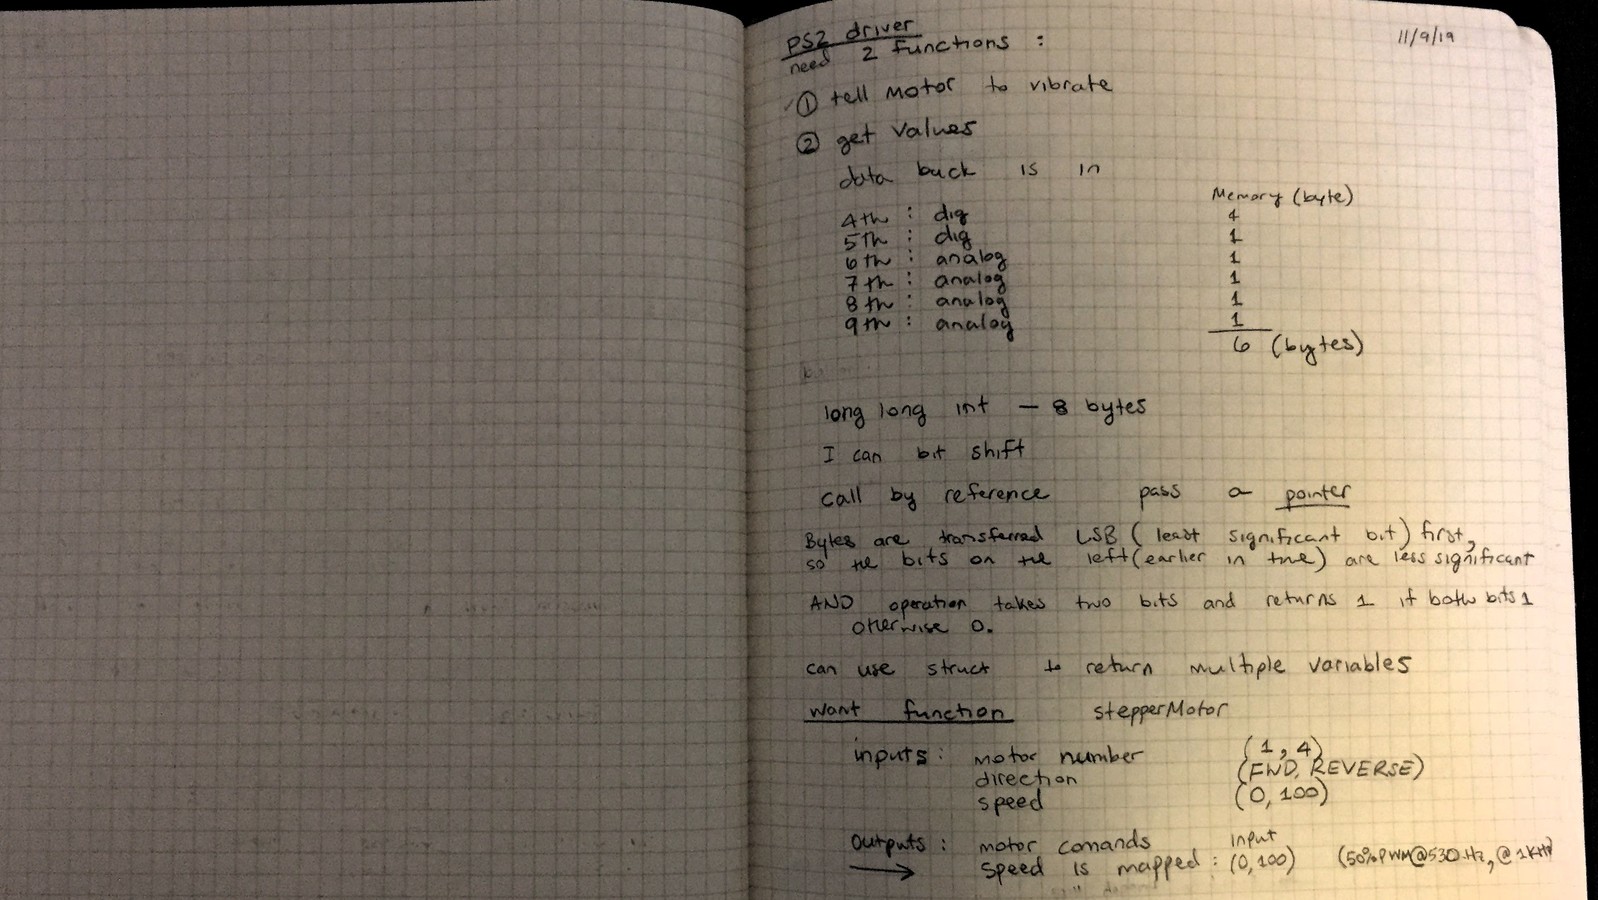 PS2 driver
11/9/19
need 2 functions :
① tell motor to vibrate
② get values
data back is in
Memory (byte)
4th : dig 1
5th : dig 1
6th : analog 1
7th : analog 1
8th : analog 1
9th : analog 1
6 (bytes)
long long int — 8 bytes
I can bit shift
call by reference pass a pointer
Bytes are transferred LSB (least significant bit) first,
so the bits on the left (earlier in time) are less significant
AND operation takes two bits and returns 1 if both bits 1
otherwise 0.
can use struct to return multiple variables
want function stepperMotor
inputs : motor number (1, 4)
direction (FWD, REVERSE)
speed (0, 100)
outputs : motor comands input
→ speed is mapped : (0, 100) (50% PWM @ 530 Hz, @ 1KHz)